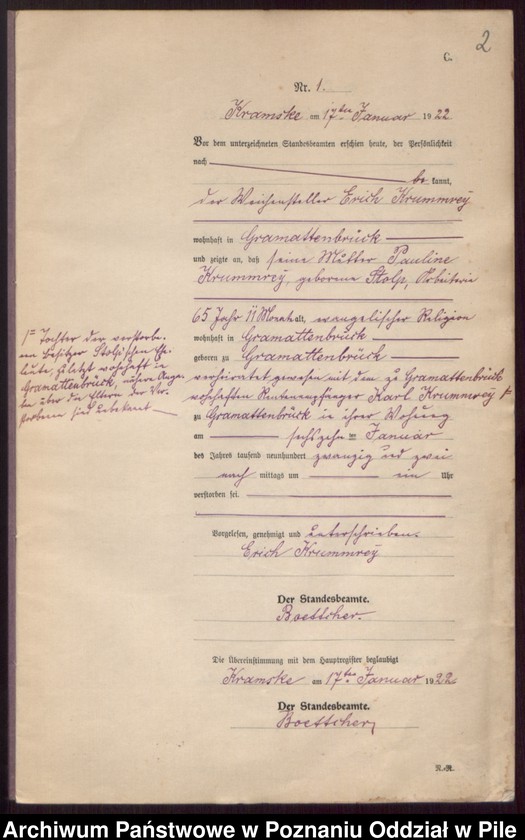 2
C.
Nr. 1.
Kramske am 17ten Januar 1922
Vor dem unterzeichneten Standesbeamten erschien heute, der Persönlichkeit
nach
be kannt,
der Weichensteller Erich Krummrey
wohnhaft in Gramattenbrück
und zeigte an, daß seine Mutter Pauline
Krummrey, geborene Stolp, Arbeiterin
65 Jahr 11 Monat alt, evangelischer Religion
wohnhaft in Gramattenbrück
geboren zu Gramattenbrück
verheiratet gewesen mit dem zu Gramattenbrück
wohnhaften Rentenempfänger Karl Krummrey
zu Gramattenbrück in ihrer Wohnung
am sechszehn ten Januar
des Jahres tausend neunhundert zwanzig und zwei
nach mittags um ein Uhr
verstorben sei.
1 Tochter der verstorbe-
nen Besitzer Stolp'schen Ehe-
leute, zuletzt wohnhaft in
Gramattenbrück, nähere Anga-
ben über die Eltern der Ver-
storbenen sind unbekannt
Vorgelesen, genehmigt und unterschrieben.
Erich Krummrey
Der Standesbeamte.
Boettcher.
Die Übereinstimmung mit dem Hauptregister beglaubigt
Kramske am 17ten Januar 1922
Der Standesbeamte.
Boettcher
Archiwum Państwowe w Poznaniu Oddział w Pile